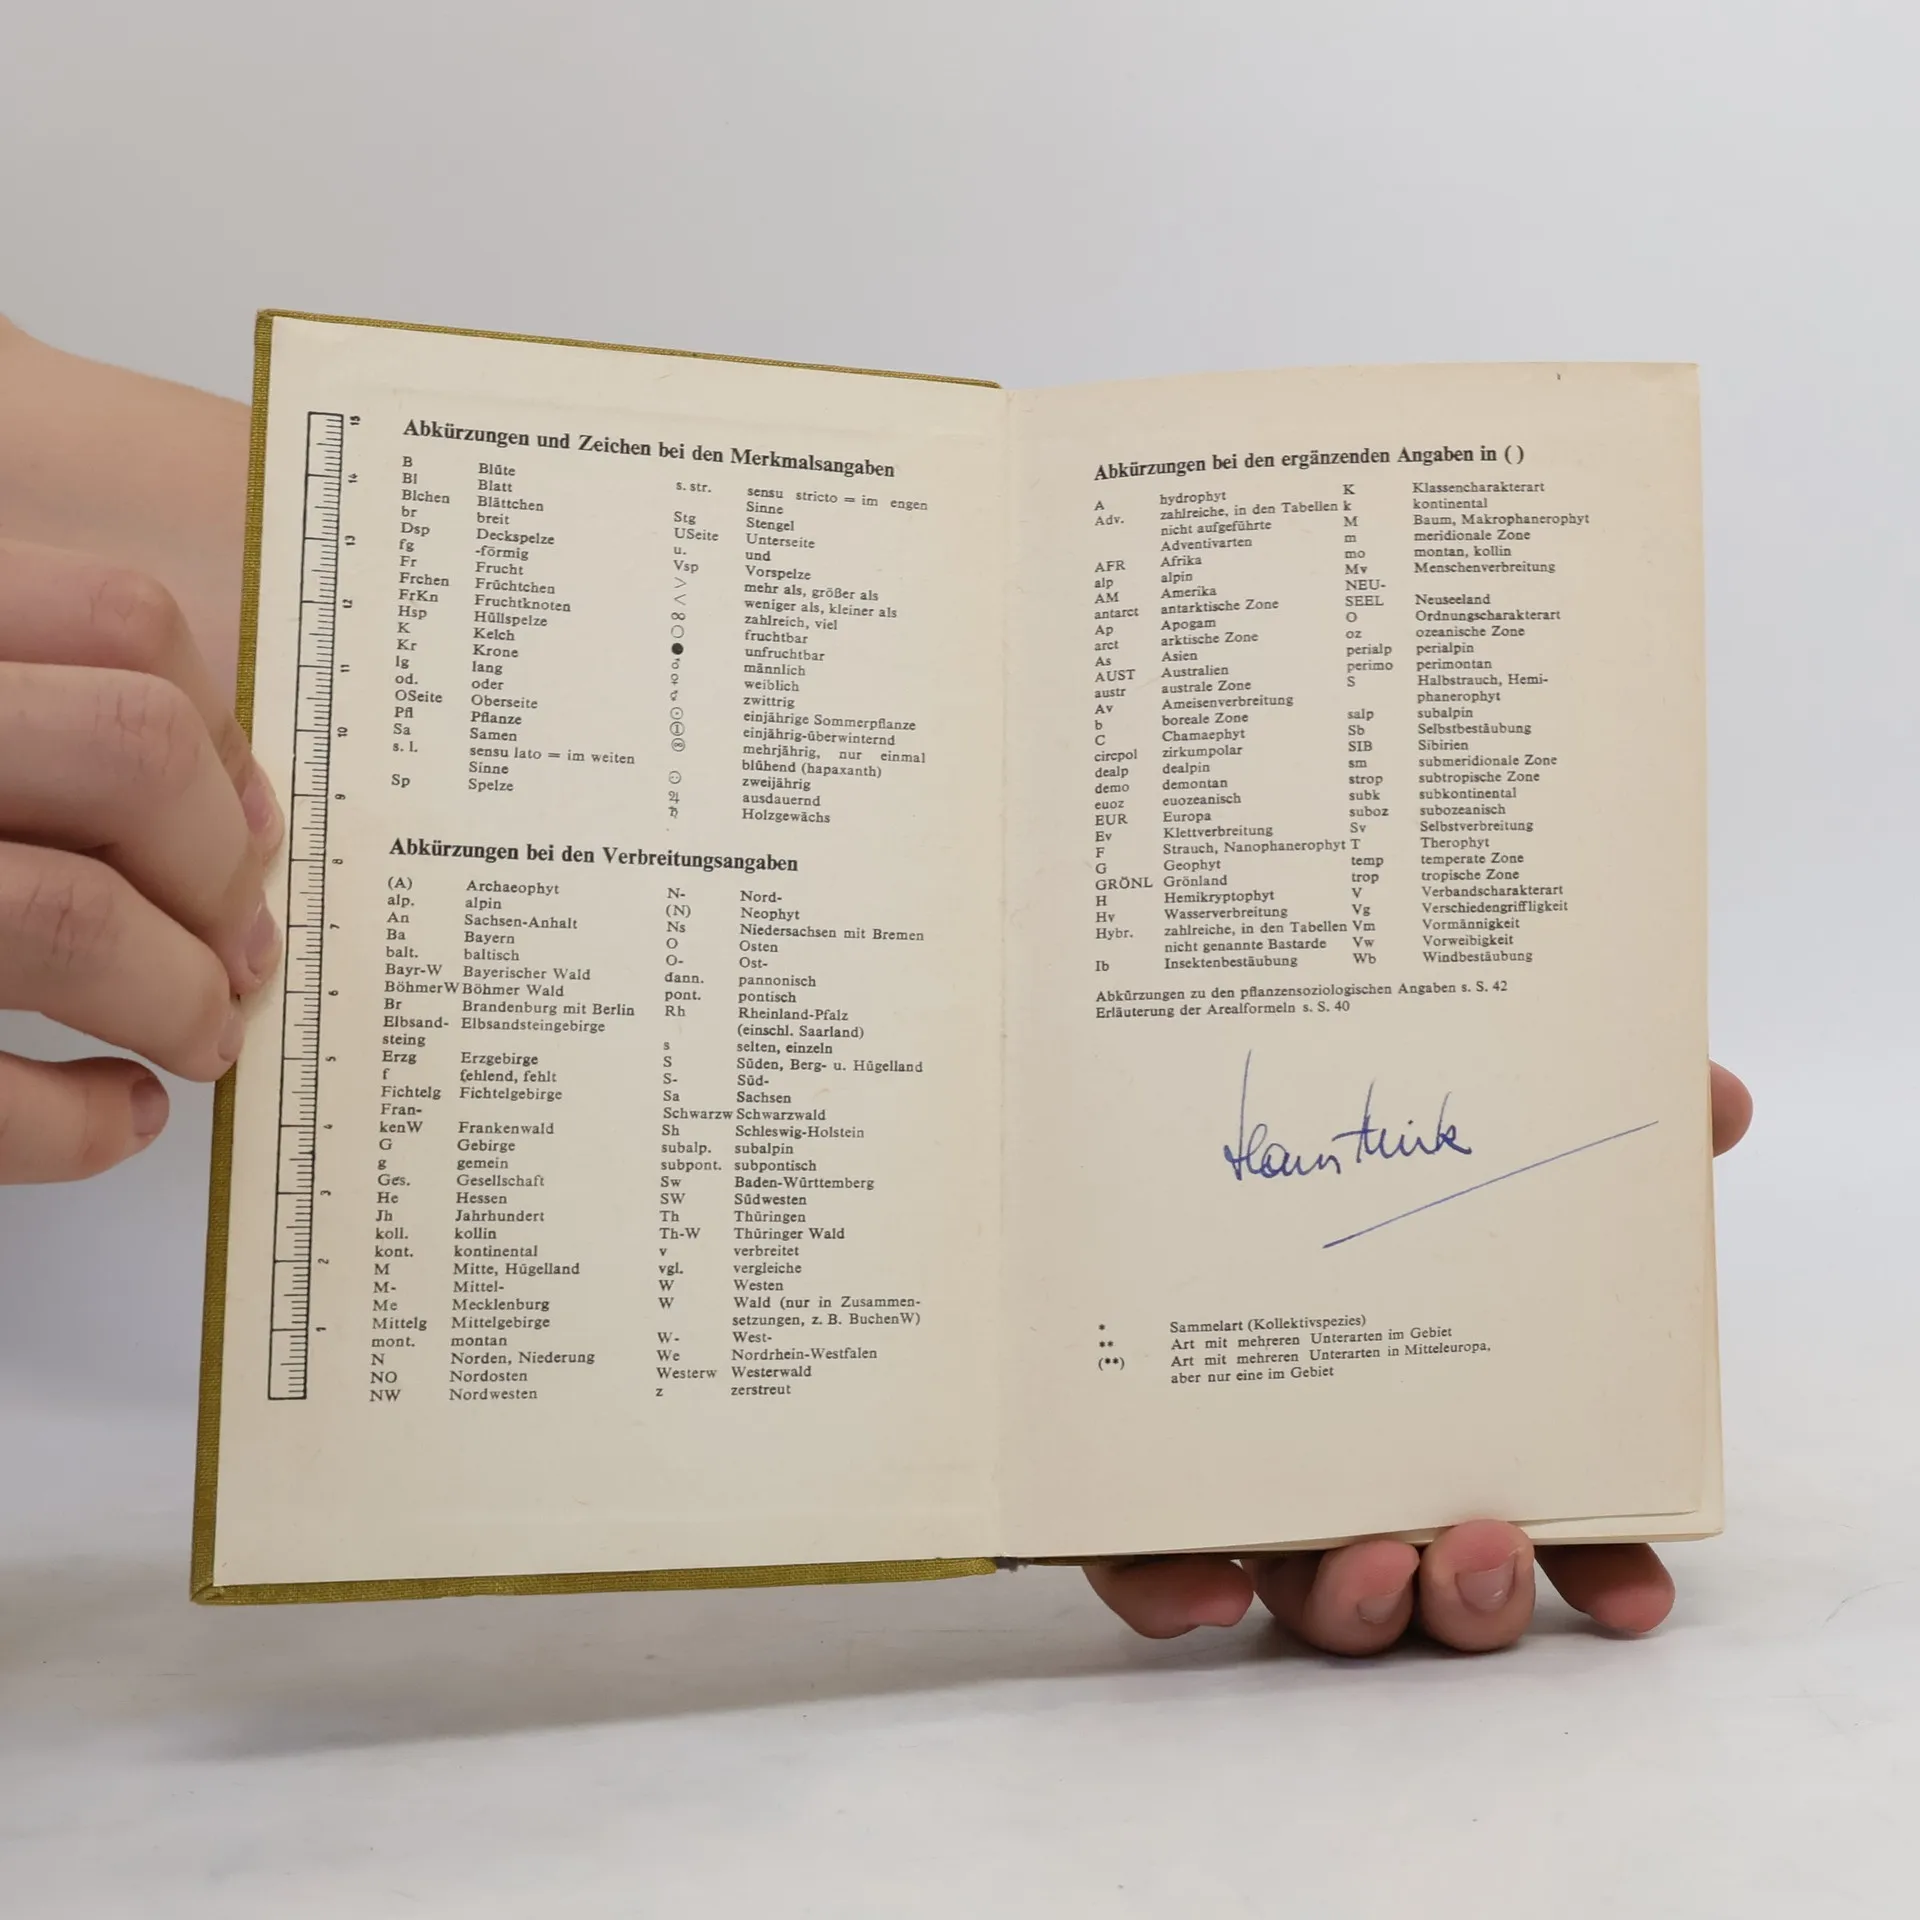 Abkürzungen und Zeichen bei den Merkmalsangaben
B Blüte
Bl Blatt
Blchen Blättchen
br breit
Dsp Deckspelze
fg -förmig
Fr Frucht
Frchen Früchtchen
FrKn Fruchtknoten
Hsp Hüllspelze
K Kelch
Kr Krone
lg lang
od. oder
OSeite Oberseite
Pfl Pflanze
Sa Samen
s. l. sensu lato = im weiten
Sinne
Sp Spelze
s. str. sensu stricto = im engen
Sinne
Stg Stengel
USeite Unterseite
u. und
Vsp Vorspelze
> mehr als, größer als
< weniger als, kleiner als
∞ zahlreich, viel
○ fruchtbar
● unfruchtbar
♂ männlich
♀ weiblich
⚥ zwittrig
☉ einjährige Sommerpflanze
① einjährig-überwinternd
mehrjährig, nur einmal
blühend (hapaxanth)
zweijährig
♃ ausdauernd
♄ Holzgewächs
Abkürzungen bei den Verbreitungsangaben
(A) Archaeophyt
alp. alpin
An Sachsen-Anhalt
Ba Bayern
balt. baltisch
Bayr-W Bayerischer Wald
BöhmerW Böhmer Wald
Br Brandenburg mit Berlin
Elbsand- Elbsandsteingebirge
steing
Erzg Erzgebirge
f fehlend, fehlt
Fichtelg Fichtelgebirge
Fran-
kenW Frankenwald
G Gebirge
g gemein
Ges. Gesellschaft
He Hessen
Jh Jahrhundert
koll. kollin
kont. kontinental
M Mitte, Hügelland
M- Mittel-
Me Mecklenburg
Mittelg Mittelgebirge
mont. montan
N Norden, Niederung
NO Nordosten
NW Nordwesten
N- Nord-
(N) Neophyt
Ns Niedersachsen mit Bremen
O Osten
O- Ost-
dann. pannonisch
pont. pontisch
Rh Rheinland-Pfalz
(einschl. Saarland)
s selten, einzeln
S Süden, Berg- u. Hügelland
S- Süd-
Sa Sachsen
Schwarzw Schwarzwald
Sh Schleswig-Holstein
subalp. subalpin
subpont. subpontisch
Sw Baden-Württemberg
SW Südwesten
Th Thüringen
Th-W Thüringer Wald
v verbreitet
vgl. vergleiche
W Westen
W Wald (nur in Zusammen-
setzungen, z. B. BuchenW)
W- West-
We Nordrhein-Westfalen
Westerw Westerwald
z zerstreut
15
14
13
12
11
10
9
8
7
6
5
4
3
2
1
Abkürzungen bei den ergänzenden Angaben in ( )
A hydrophyt
Adv. zahlreiche, in den Tabellen
nicht aufgeführte
Adventivarten
AFR Afrika
alp alpin
AM Amerika
antarct antarktische Zone
Ap Apogam
arct arktische Zone
As Asien
AUST Australien
austr australe Zone
Av Ameisenverbreitung
b boreale Zone
C Chamaephyt
circpol zirkumpolar
dealp dealpin
demo demontan
euoz euozeanisch
EUR Europa
Ev Klettverbreitung
F Strauch, Nanophanerophyt
G Geophyt
GRÖNL Grönland
H Hemikryptophyt
Hv Wasserverbreitung
Hybr. zahlreiche, in den Tabellen
nicht genannte Bastarde
Ib Insektenbestäubung
K Klassencharakterart
k kontinental
M Baum, Makrophanerophyt
m meridionale Zone
mo montan, kollin
Mv Menschenverbreitung
NEU-
SEEL Neuseeland
O Ordnungscharakterart
oz ozeanische Zone
perialp perialpin
perimo perimontan
S Halbstrauch, Hemi-
phanerophyt
salp subalpin
Sb Selbstbestäubung
SIB Sibirien
sm submeridionale Zone
strop subtropische Zone
subk subkontinental
suboz subozeanisch
Sv Selbstverbreitung
T Therophyt
temp temperate Zone
trop tropische Zone
V Verbandscharakterart
Vg Verschiedengriffligkeit
Vm Vormännigkeit
Vw Vorweibigkeit
Wb Windbestäubung
Abkürzungen zu den pflanzensoziologischen Angaben s. S. 42
Erläuterung der Arealformeln s. S. 40
* Sammelart (Kollektivspezies)
** Art mit mehreren Unterarten im Gebiet
(**) Art mit mehreren Unterarten in Mitteleuropa,
aber nur eine im Gebiet